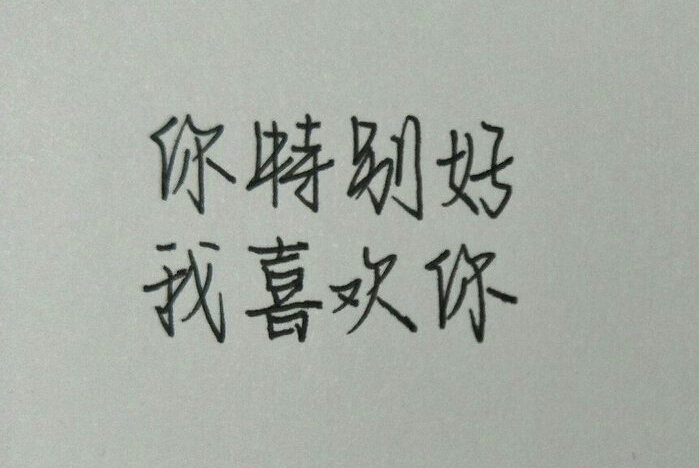 你特别好
我喜欢你